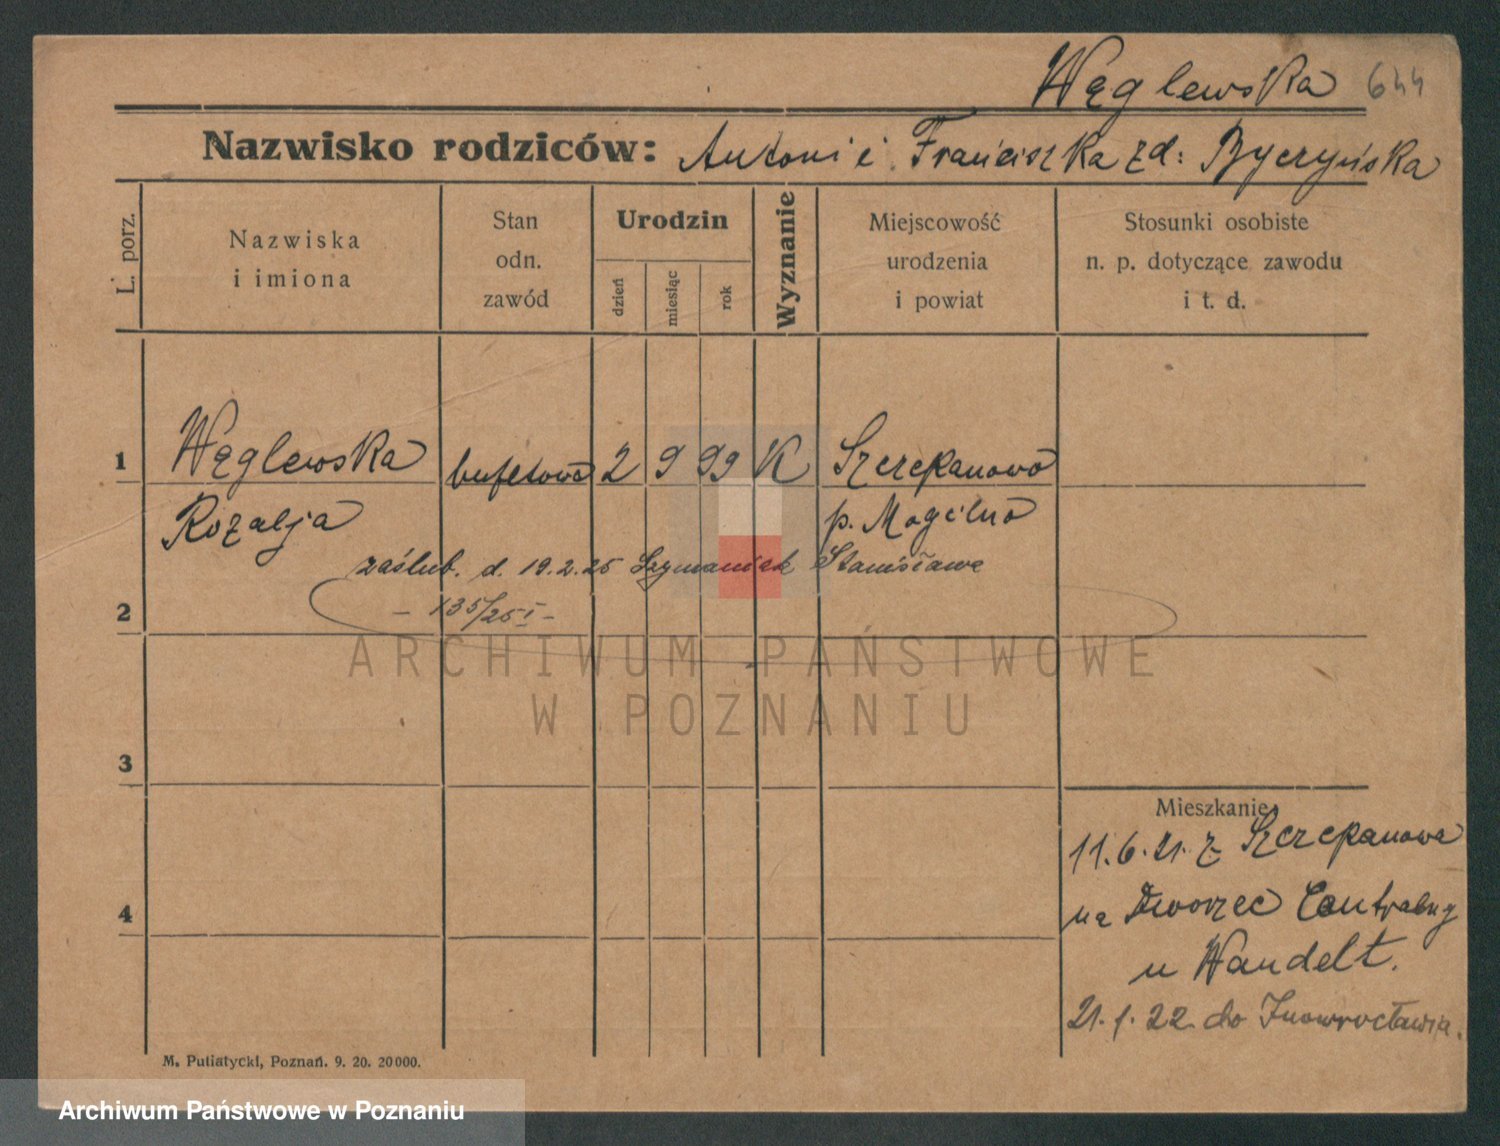 Węglewska 644
Nazwisko rodziców: Antoni i Franciszka zd: Byczyńska
L. porz.
Nazwiska
i imiona
Stan
odn.
zawód
Urodzin
dzień
miesiąc
rok
Wyznanie
Miejscowość
urodzenia
i powiat
Stosunki osobiste
n. p. dotyczące zawodu
i t. d.
1 Węglewska bufetowa 2 9 99 K Szczepanowo
Rozalja p. Mogilno
zaślub. d. 19.2.25 Szymaniak Stanisława
2 – 135/25 I –
ARCHIWUM PAŃSTWOWE
W POZNANIU
3
Mieszkanie
11.6.21. z Szczepanowa
4 na Dworzec Centralny
u Wandelt.
21.1.22 do Inowrocławia.
M. Putiatycki, Poznań. 9. 20. 20000.
Archiwum Państwowe w Poznaniu